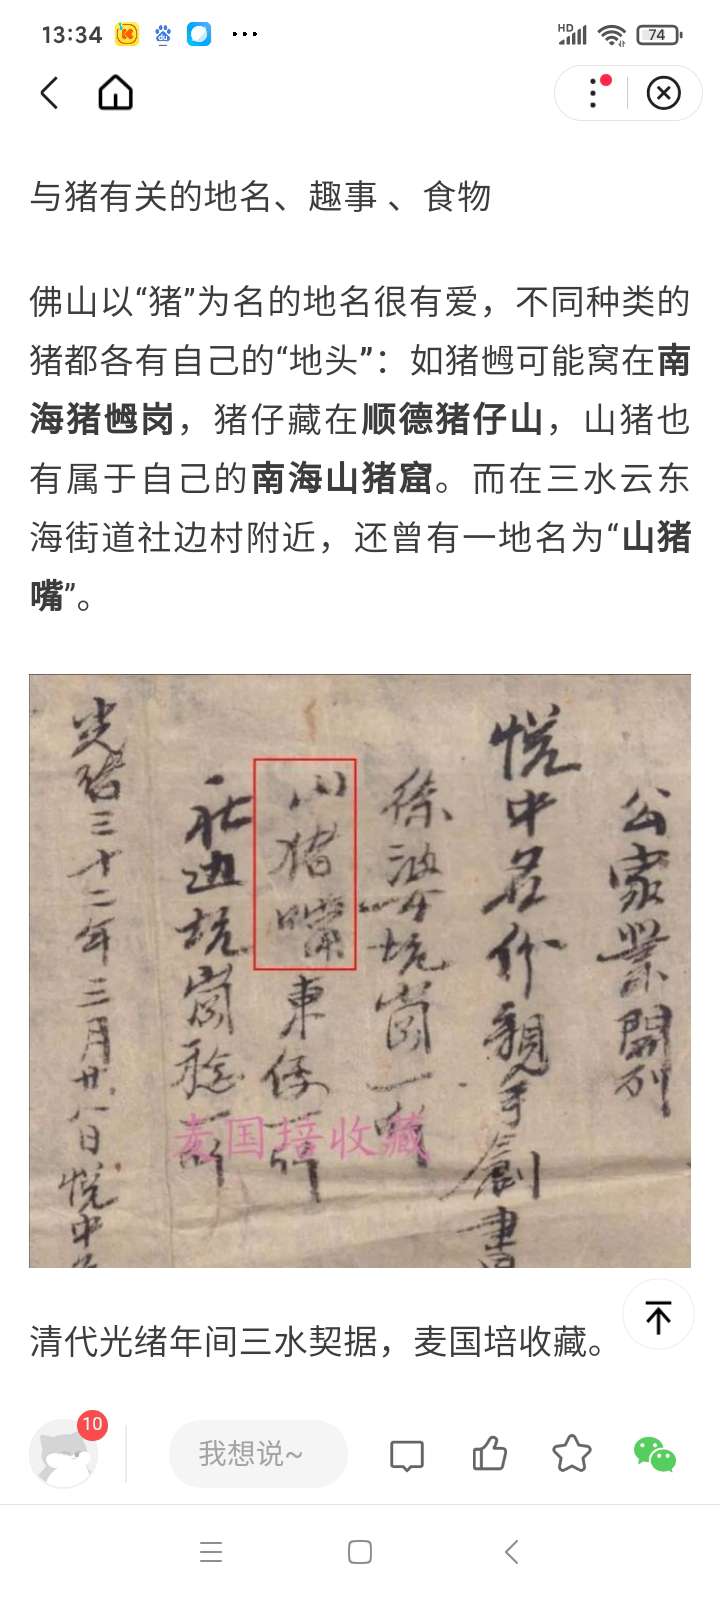 13:34
HD
74
与猪有关的地名、趣事 、食物
佛山以“猪”为名的地名很有爱，不同种类的
猪都各有自己的“地头”：如猪乸可能窝在南
海猪乸岗，猪仔藏在顺德猪仔山，山猪也
有属于自己的南海山猪窟。而在三水云东
海街道社边村附近，还曾有一地名为“山猪
嘴”。
公家業開列
悦中名份親手創書
徐婆坑崗一
山猪嘴東
社边坑崗
光绪三十二年三月廿八日悦中
麦国培收藏
清代光绪年间三水契据，麦国培收藏。
10
我想说~